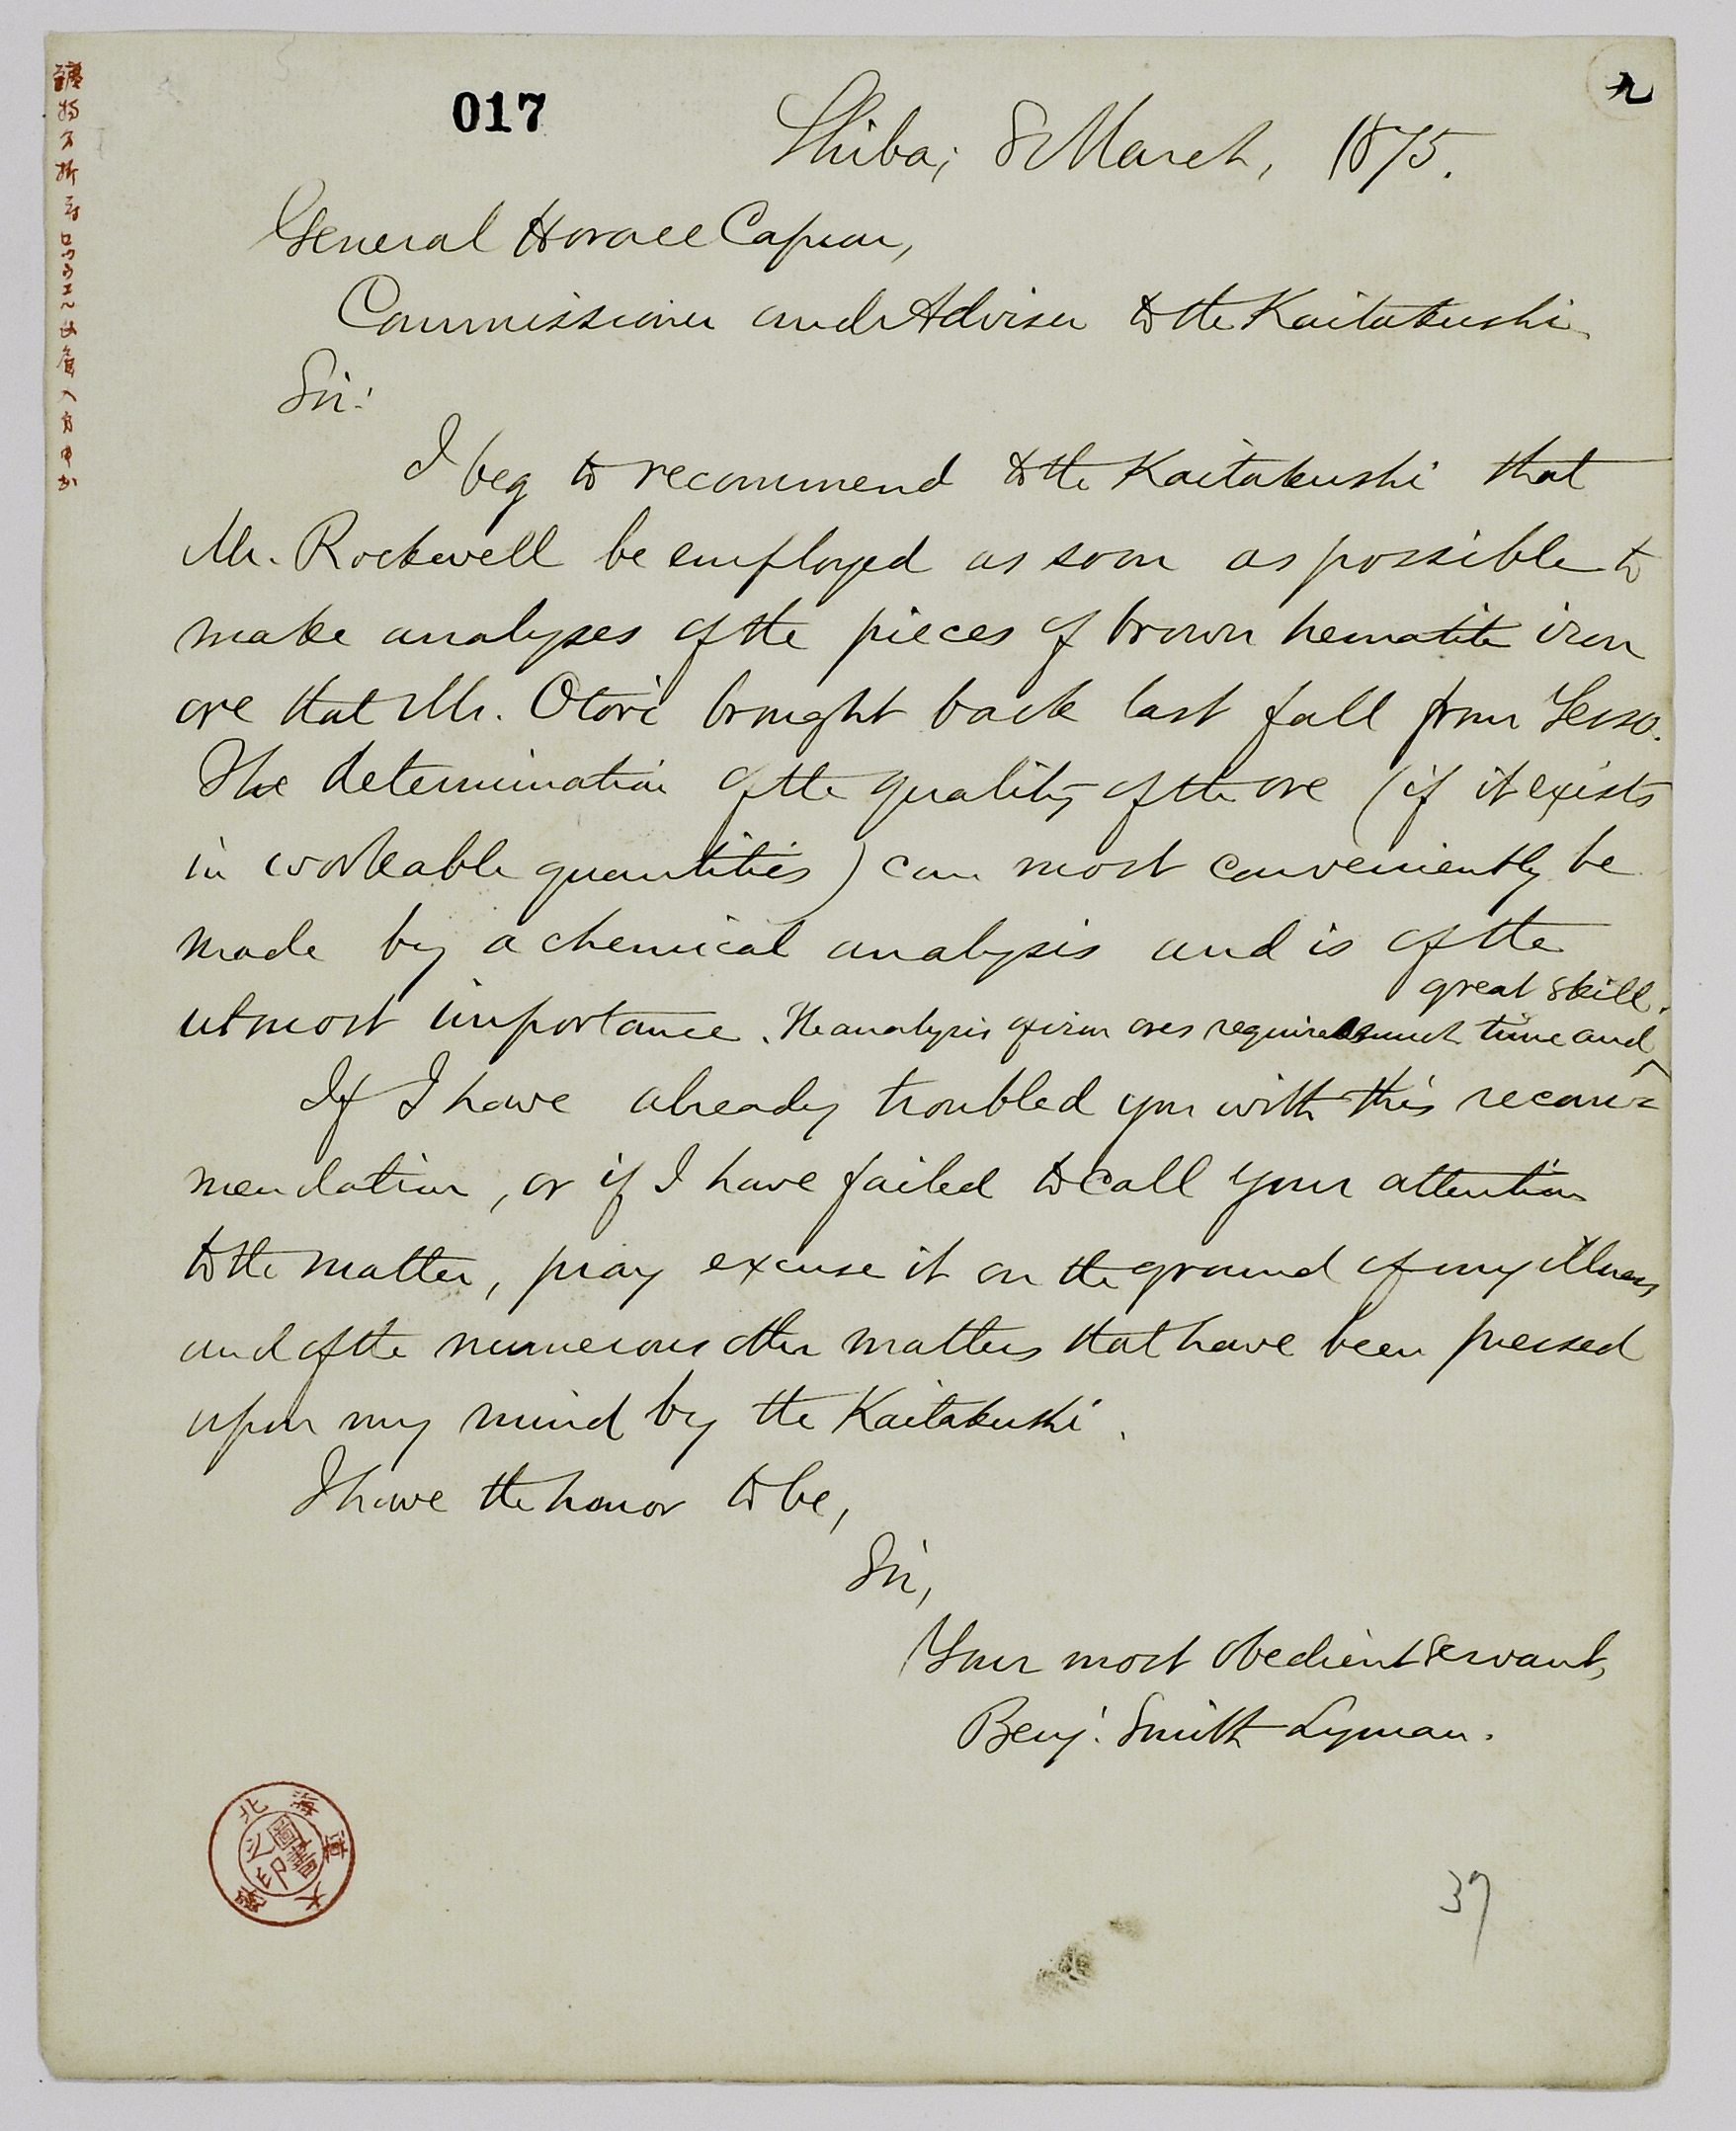 017
Shiba, 8 March, 1875.
General Horace Capron,
Commissioner and Adviser to the Kaitakushi.
Sir:
I beg to recommend to the Kaitakushi that
Mr. Rockwell be employed as soon as possible to
make analyses of the pieces of brown hematite iron
ore that Mr. Otori brought back last fall from Yesso.
The determination of the quality of the ore (if it exists
in workable quantities) can most conveniently be
made by a chemical analysis and is of the
utmost importance. The analysis of iron ores requires much time and great skill.
If I have already troubled you with this recom=
mendation, or if I have failed to call your attention
to the matter, pray excuse it on the ground of my illness
and of the numerous other matters that have been pressed
upon my mind by the Kaitakushi.
I have the honor to be,
Sir,
Your most obedient servant,
Benj. Smith Lyman.
北海道大學
圖書之印
37